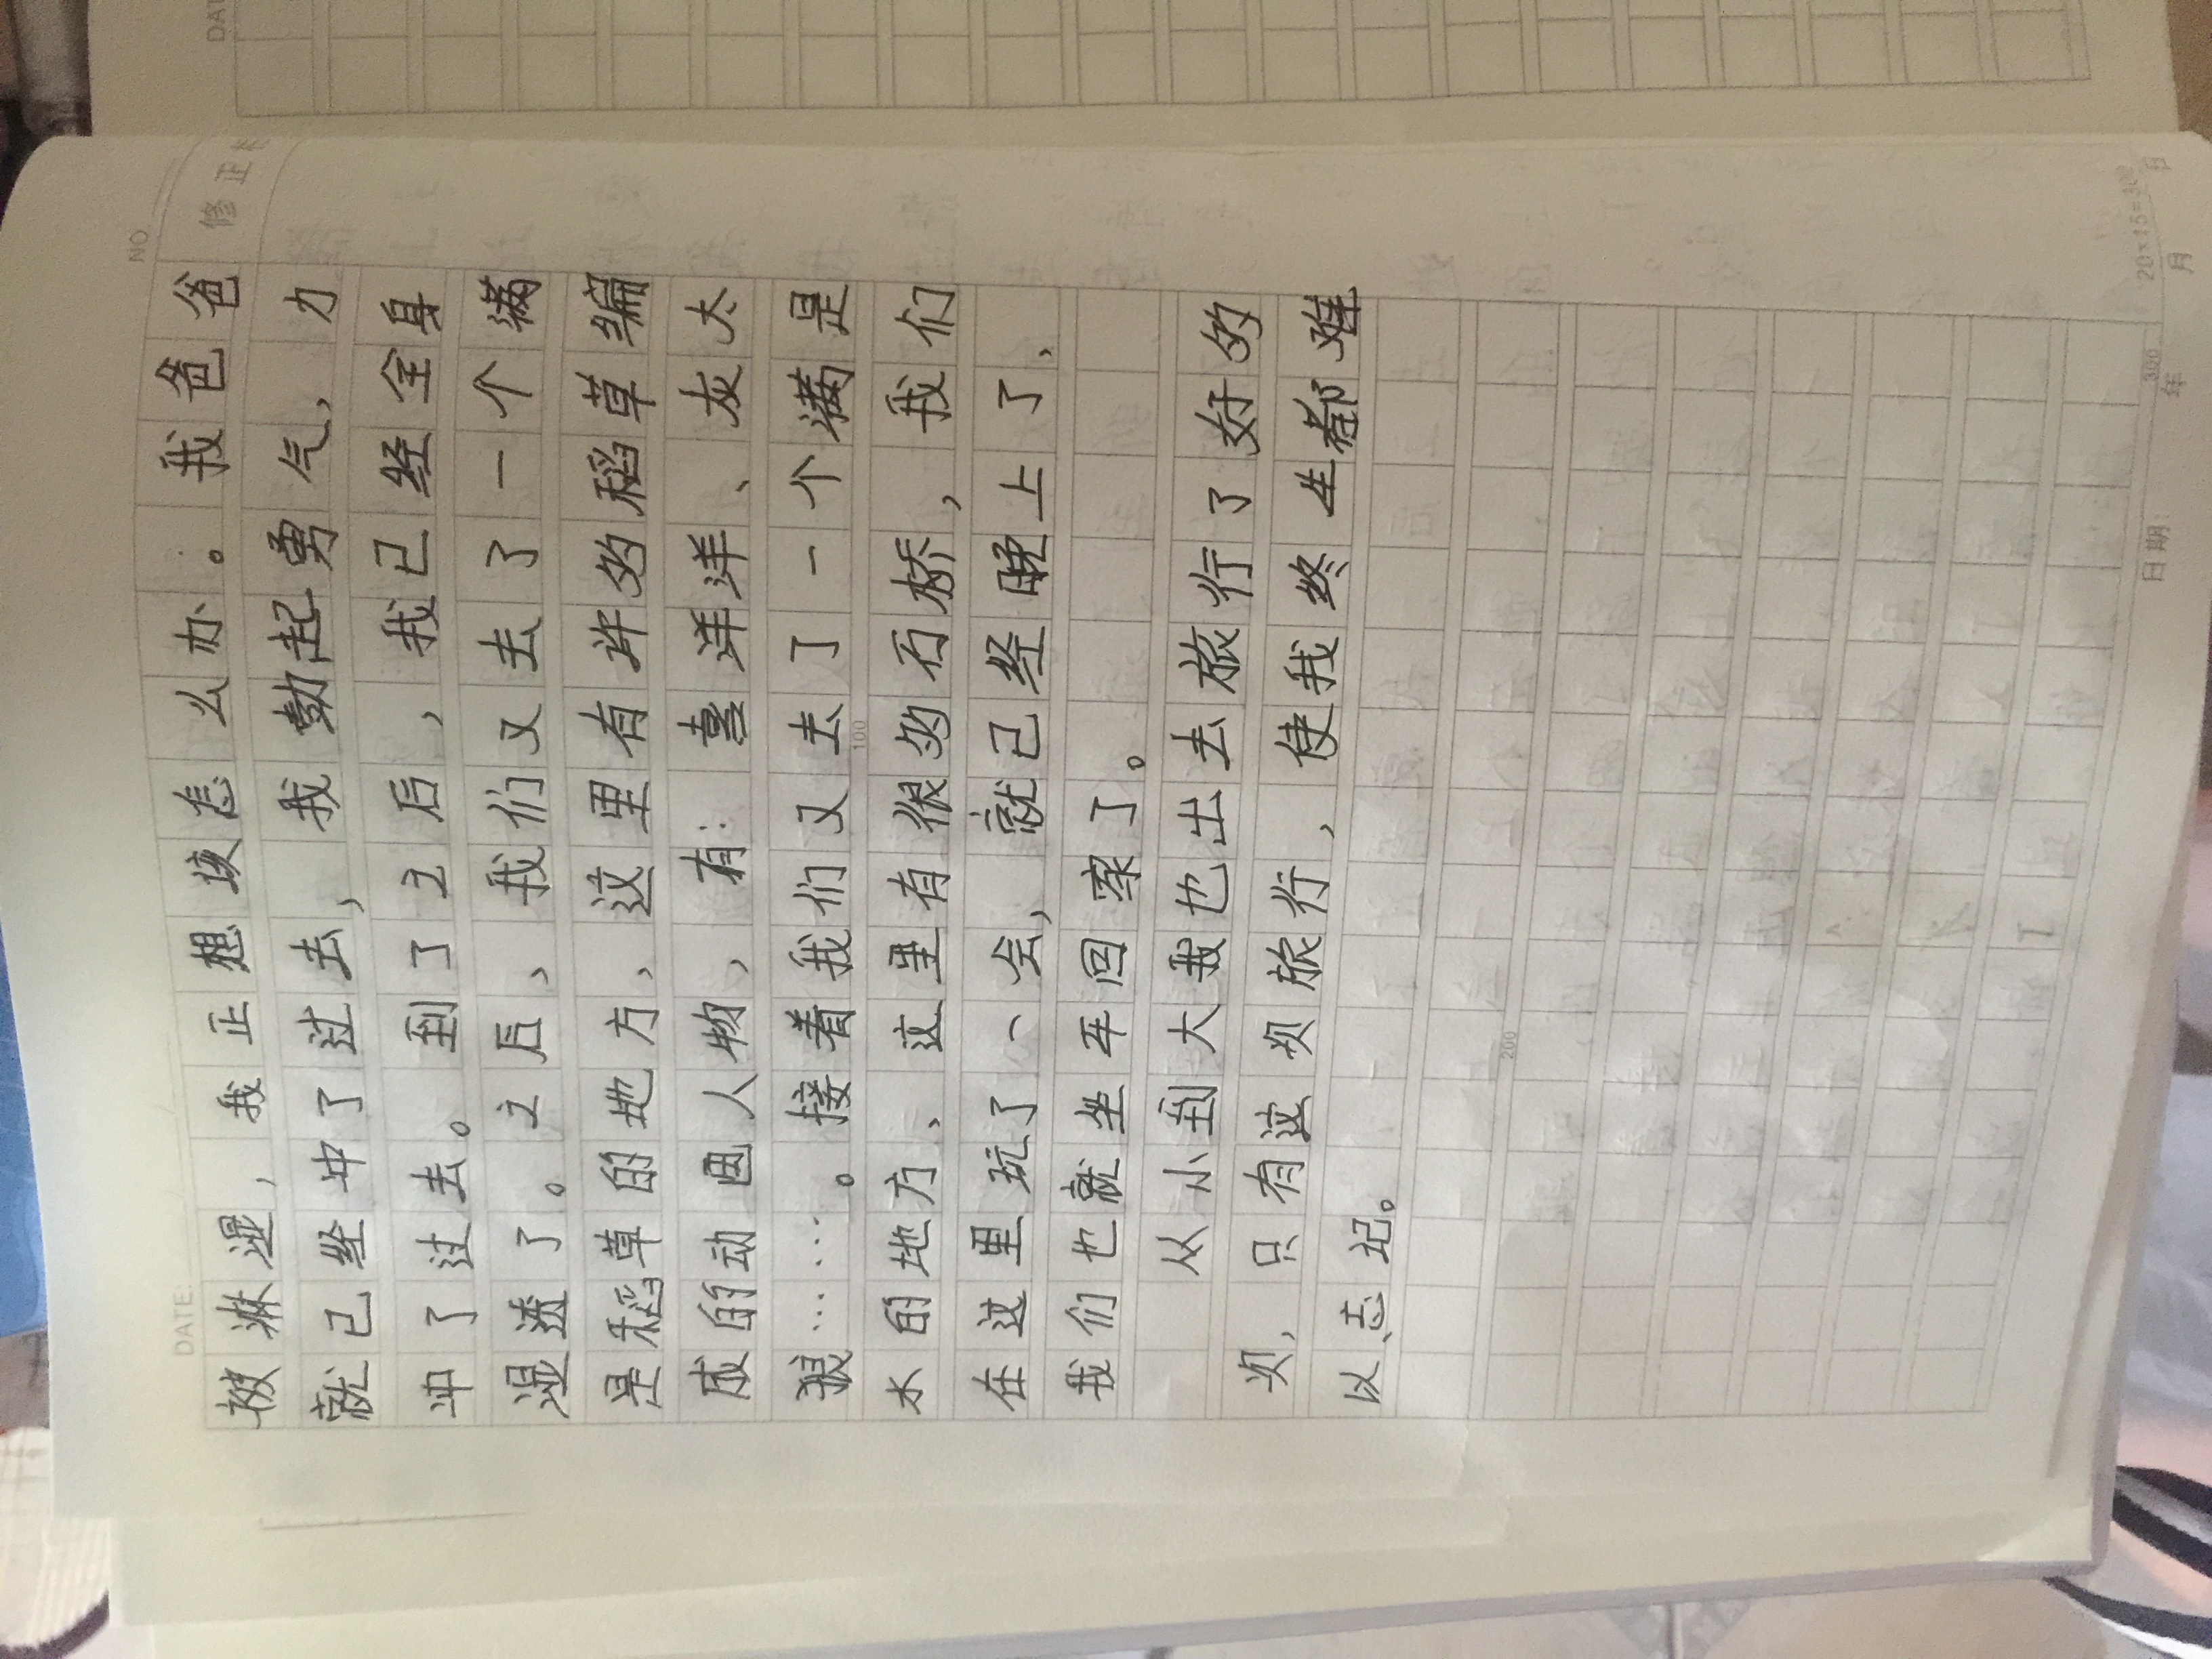 NO
DATE
修正
被淋湿,我正想该怎么办。我爸爸
就已经冲了过去,我勃起勇气,力
冲了过去。到了之后,我已经全身
湿透了。之后,我们又去了一个满
是稻草的地方,这里有许多的稻草编
成的动画人物,有:喜洋洋、灰太
狼……。接着我们又去了一个满是
水的地方,这里有很多的石桥,我们
在这里玩了一会,就已经晚上了,
我们也就坐车回家了。
从小到大我也出去旅行了好多
次,只有这次旅行,使我终生都难
以忘记。
100
200
300
20×15=300
日期: 年 月 日
DAT